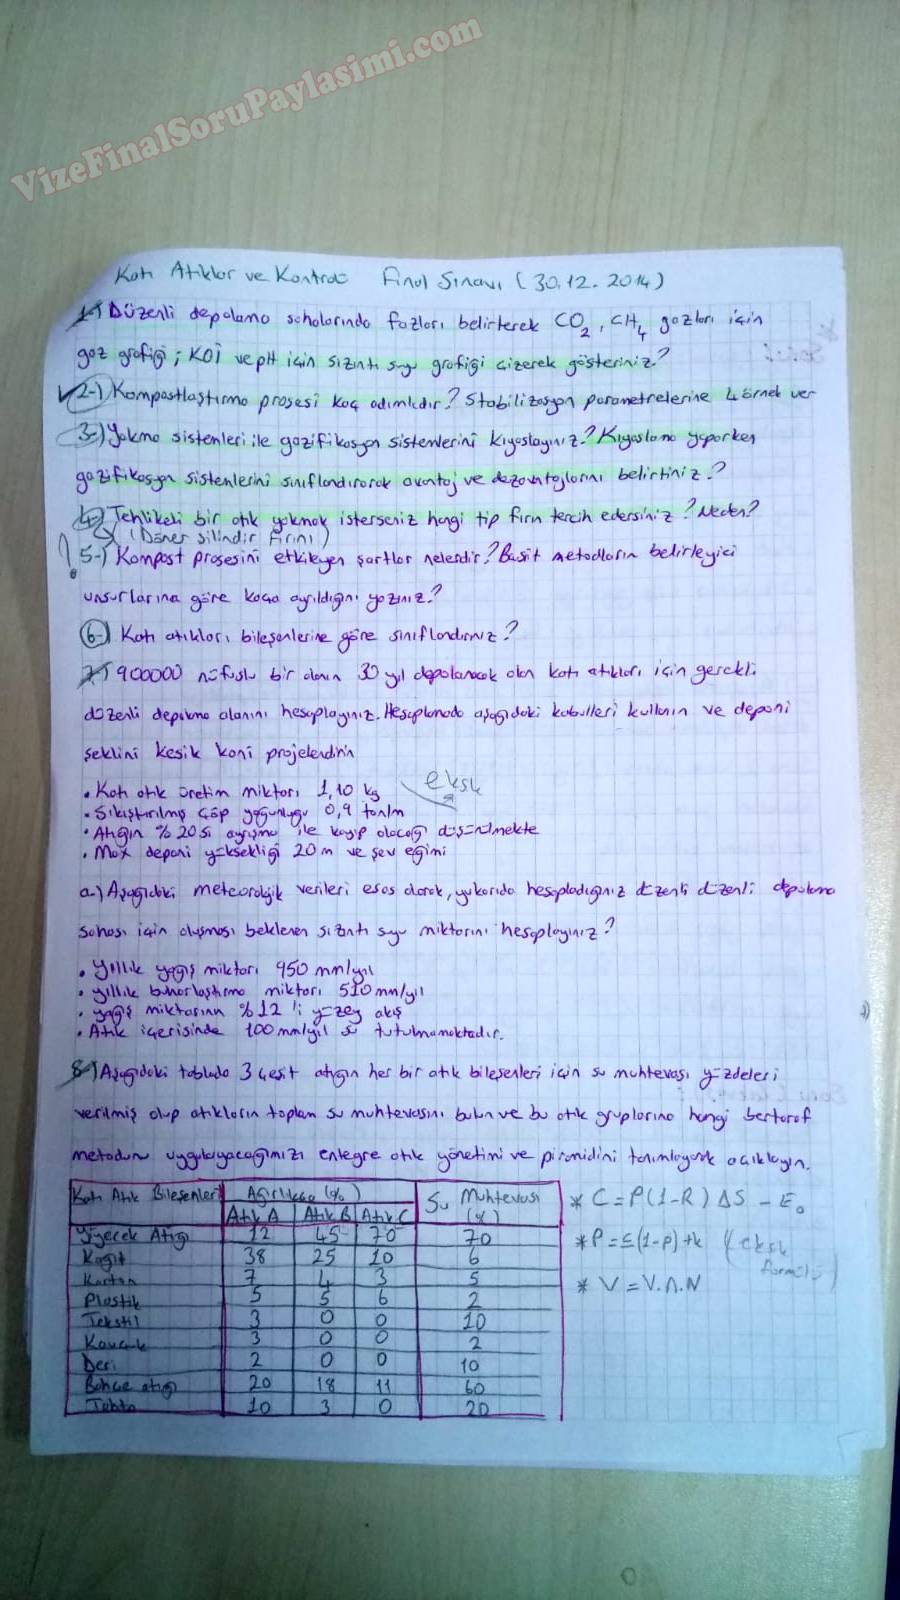 VizeFinalSoruPaylasimi.com
Katı Atıklar ve Kontrolü Final Sınavı (30.12.2014)
1-) Düzenli depolama sahalarında fazları belirterek CO2, CH4 gazları için
gaz grafiği; KOİ ve pH için sızıntı suyu grafiği çizerek gösteriniz?
2-) Kompostlaştırma prosesi kaç adımlıdır? Stabilizasyon parametrelerine 4 örnek ver
3-) Yakma sistemleri ile gazifikasyon sistemlerini kıyaslayınız? Kıyaslama yaparken
gazifikasyon sistemlerini sınıflandırarak avantaj ve dezavantajlarını belirtiniz?
4-) Tehlikeli bir atık yakmak isterseniz hangi tip fırın tercih edersiniz? Neden?
(Döner silindir Fırını)
! 5-) Kompost prosesini etkileyen şartlar nelerdir? Basit metodların belirleyici
unsurlarına göre kaça ayrıldığını yazınız?
6-) Katı atıkları bileşenlerine göre sınıflandırınız?
7-) 900000 nüfuslu bir alanın 30 yıl depolanacak olan katı atıkları için gerekli
düzenli depolama alanını hesaplayınız. Hesaplamada aşağıdaki kabulleri kullanın ve deponi
şeklini kesik koni projelendirin
• Katı atık üretim miktarı 1,10 kg
eksik
• Sıkıştırılmış çöp yoğunluğu 0,9 ton/m
• Atığın %20 si ayrışma ile kayıp olacağı düşünülmekte
• Max deponi yüksekliği 20 m ve şev eğimi
a-) Aşağıdaki meteorolojik verileri esas alarak, yukarıda hesapladığınız düzenli düzenli depolama
sahası için oluşması beklenen sızıntı suyu miktarını hesaplayınız?
• Yıllık yağış miktarı 950 mm/yıl
• yıllık buharlaştırma miktarı 510 mm/yıl
• yağış miktarının %12 'i yüzey akış
• Atık içerisinde 100 mm/yıl su tutulmamaktadır.
8-) Aşağıdaki tabloda 3 çeşit atığın her bir atık bileşenleri için su muhtevası yüzdeleri
verilmiş olup atıkların toplam su muhtevasını bulun ve bu atık gruplarına hangi bertaraf
metodunu uygulayacağımızı entegre atık yönetimi ve piramidini tanımlayarak açıklayın.
Katı Atık Bileşenleri Ağırlıkça (%) Su Muhtevası (%)
Atık A Atık B Atık C
Yiyecek Atığı 12 45 70 70
Kağıt 38 25 10 6
Karton 7 4 3 5
Plastik 5 5 6 2
Tekstil 3 0 0 10
Kauçuk 3 0 0 2
Deri 2 0 0 10
Bahçe atığı 20 18 11 60
Tahta 10 3 0 20
* C = P(1-R) ΔS - E0
* P = ε(1-p)+k (eksik formül)
* V = V.A.N